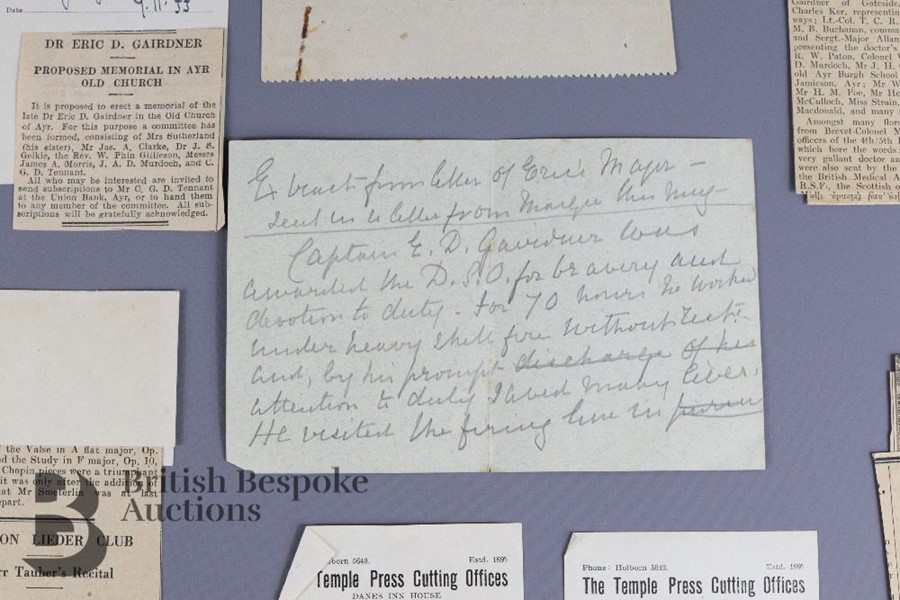 Date
9.11.33
DR ERIC D. GAIRDNER
PROPOSED MEMORIAL IN AYR
OLD CHURCH
It is proposed to erect a memorial of the
late Dr Eric D. Gairdner in the Old Church
of Ayr. For this purpose a committee has
been formed, consisting of Mrs Sutherland
(his sister), Mr Jas. A. Clarke, Dr J. S.
Geikie, the Rev. W. Phin Gillieson, Messrs
James A. Morris, J. A. D. Murdoch, and C.
G. D. Tennant.
All who may be interested are invited to
send subscriptions to Mr C. G. D. Tennant
at the Union Bank, Ayr, or to hand them
to any member of the committee. All sub-
scriptions will be gratefully acknowledged.
Gairdner of Gateside,
Charles Ker, representin
ways; Lt.-Col. T. C. R.
M. B. Buchanan, comma
and Sergt.-Major Allan
presenting the doctor's
R. W. Paton, Colonel
D. Murdoch, Mr J. H.
old Ayr Burgh School
Jamieson, Ayr; Mr W
Mr H. M. Poe, Mr He
McCulloch, Miss Strain,
Macdonald, and many
Amongst many flor
from Brevet-Colonel M
officers of the 4th/5th
which bore the words
very gallant doctor an
were also sent by the
the British Medical A
R.S.F., the Scottish o
Extract from letter of Eric's Major -
sent in a letter from Margie this Mng -
Captain E. D. Gairdner was
awarded the D.S.O. for bravery and
devotion to duty - For 70 hours he worked
under heavy shell fire without rest -
and, by his prompt discharge of his
attention to duty saved many lives.
He visited the firing line in
the Valse in A flat major, Op.
nd the Study in F major, Op. 10,
Chopin pieces were a triumphant
it was only after the addition of
at Mr Smeterlin was at last
epart.
ON LIEDER CLUB
rr Tauber's Recital
B
British Bespoke
Auctions
lborn 5642. Estd. 1899
Temple Press Cutting Offices
DANES INN HOUSE
Phone: Holborn 5642. Estd. 1899
The Temple Press Cutting Offices